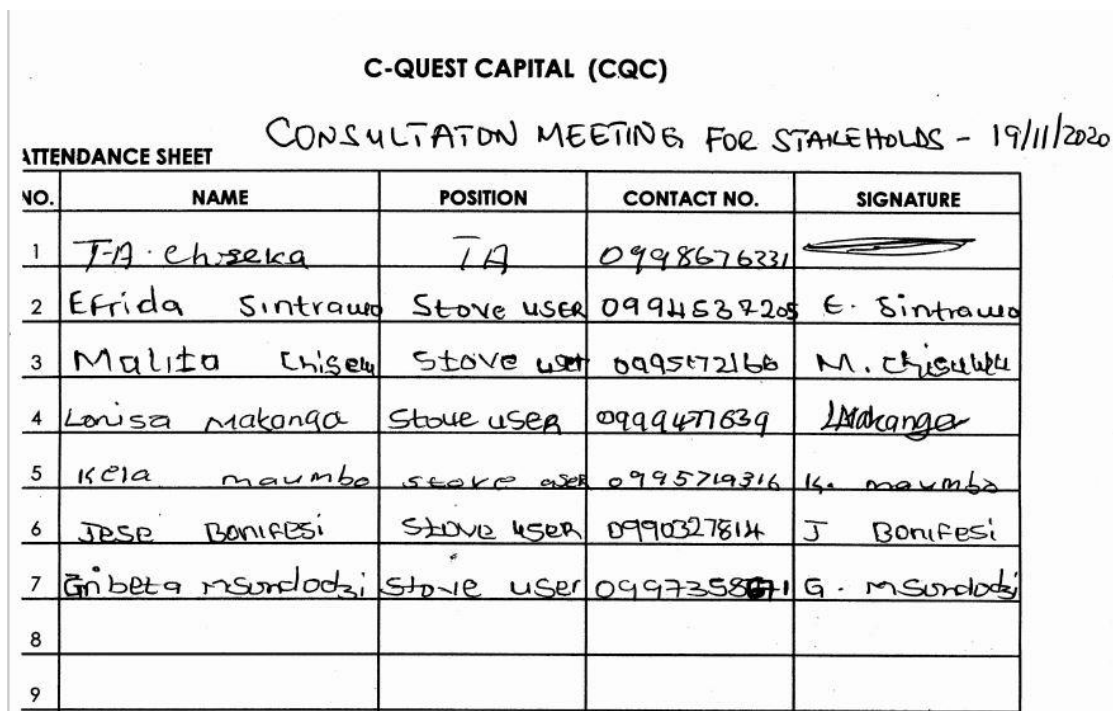 C-QUEST CAPITAL (CQC)
CONSULTATON MEETING FOR STAKEHOLDS - 19/11/2020
ATTENDANCE SHEET
NO. NAME POSITION CONTACT NO. SIGNATURE
1 T-A. Chiseka TA 0998676331
2 Efrida Sintrawo Stove user 0994537205 E. Sintrawo
3 Malita Stove user M.
4 Lonisa Makanga Stove user 0999477639 LMakanga
5 Kela maumbo stove user 0995719316 K. maumbo
6 Jese Bonifesi Stove user 0990327814 J Bonifesi
7 Gribeta msundodzi Stove user G. msundodzi
8
9